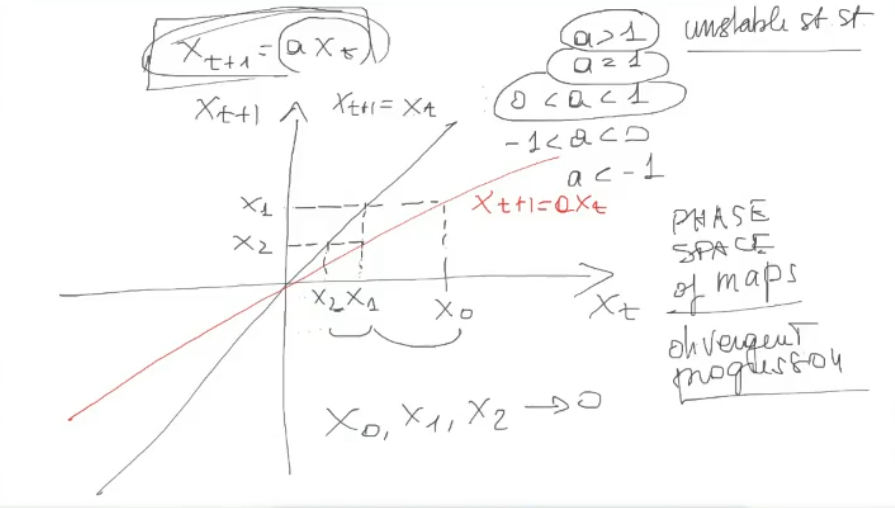 x_{t+1} = a x_t
a > 1
unstable st. st.
a = 1
0 < a < 1
-1 < a < 0
a < -1
x_{t+1}
x_{t+1} = x_t
x_1
x_2
x_{t+1} = a x_t
x_2 x_1
x_0
x_t
PHASE
SPACE
of maps
divergent
progression
x_0, x_1, x_2 → 0